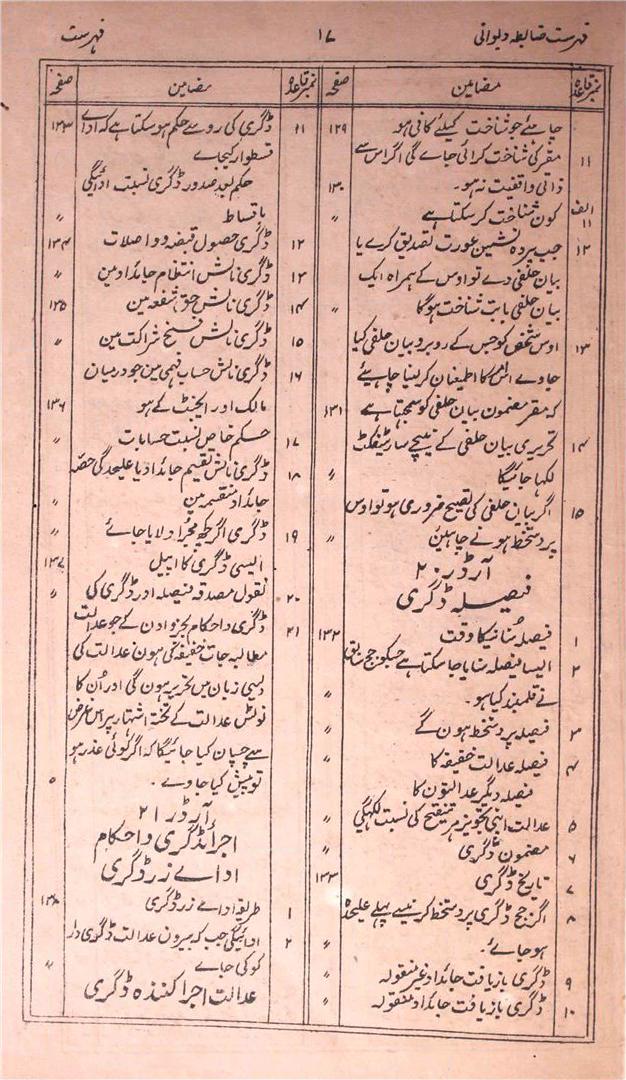 فہرست ضابطہ دیوانی ۱۷ فہرست
نمبر قاعدہ مضامین صفحہ
چاہئے جو شناخت کیلئے کافی ہو ۱۲۹
۱۱ مقر کی شناخت کرائی جاے گی اگر اس سے
ذاتی واقفیت نہ ہو۔ ۱۳۰
۱۱ الف کون شناخت کر سکتا ہے 〃
۱۲ جب پردہ نشین عورت تصدیق کرے یا
بیان حلفی دے تو اوس کے ہمراہ ایک
بیان حلفی بابت شناخت ہوگا 〃
۱۳ اوس شخص کو جس کے روبرو بیان حلفی کیا
جاوے اس کا اطمینان کر لینا چاہئے
کہ مقر مضمون بیان حلفی کو سمجہتا ہے ۱۳۱
۱۴ تحریری بیان حلفی کے نیچے سارٹیفکٹ
لکہا جائیگا 〃
۱۵ اگر بیان حلفی کی تصیح ضروری ہو تو اوس
پر دستخط ہونے چاہئیں 〃
آرڈر ۲۰
فیصلہ ڈگری
۱ فیصلہ سنانیکا وقت ۱۳۲
۲ ایسا فیصلہ سنایا جا سکتا ہے جسکو جج سابق
نے قلمبند کیا ہو۔ 〃
۳ فیصلہ پر دستخط ہون گے 〃
۴ فیصلہ عدالت خفیفہ کا
فیصلہ دیگر عدالتون کا
۵ عدالت اپنی تجویز ہر تنقیح کی نسبت لکہیگی 〃
۶ مضمون ڈگری 〃
۷ تاریخ ڈگری ۱۳۳
۸ اگر جج ڈگری پر دستخط کرنیسے پہلے علیحدہ
ہو جاے۔ 〃
۹ ڈگری بازیافت جائداد غیر منقولہ 〃
۱۰ ڈگری بازیافت جائداد منقولہ 〃
نمبر قاعدہ مضامین صفحہ
۱۱ ڈگری کی رو سے حکم ہو سکتا ہے کہ اداے ۱۳۳
قسطوار کیجاے
حکم بعد صدور ڈگری نسبت ادائیگی
باقساط 〃
۱۲ ڈگری حصول قبضہ و واصلات ۱۳۴
۱۳ ڈگری نالش انتظام جائداد مین 〃
۱۴ ڈگری نالش حق شفعہ مین ۱۳۵
۱۵ ڈگری نالش فسخ شراکت مین 〃
۱۶ ڈگری نالش حساب فہمی مین جو درمیان
مالک اور ایجنٹ کے ہو ۱۳۶
۱۷ حکم خاص نسبت حسابات 〃
۱۸ ڈگری نالش تقسیم جائداد یا علیحدگی حصہ
جائداد منقسم مین 〃
۱۹ ڈگری اگر کچھ مجرا دلایا جائے 〃
ایسی ڈگری کا اپیل ۱۳۷
۲۰ نقول مصدقہ فیصلہ اور ڈگری کی 〃
۲۱ ڈگری و احکام بجز اون کے جو عدالت
مطالبہ جات خفیفہ کی ہون عدالت کی
دیسی زبان مین تحریر ہون گی اور اُن کا
نوٹس عدالت کے تختہ اشتہار پر اس غرض
سے چسپان کیا جائیگا کہ اگر کوئی عذر ہو
تو پیش کیا جاوے۔
آرڈر ۲۱
اجراڈگری و احکام
اداے زر ڈگری
۱ طریقہ اداے زر ڈگری ۱۳۸
۲ ادائیگی جب کہ بیرون عدالت ڈگری دار
کو کی جاے 〃
عدالت اجرا کنندہ ڈگری